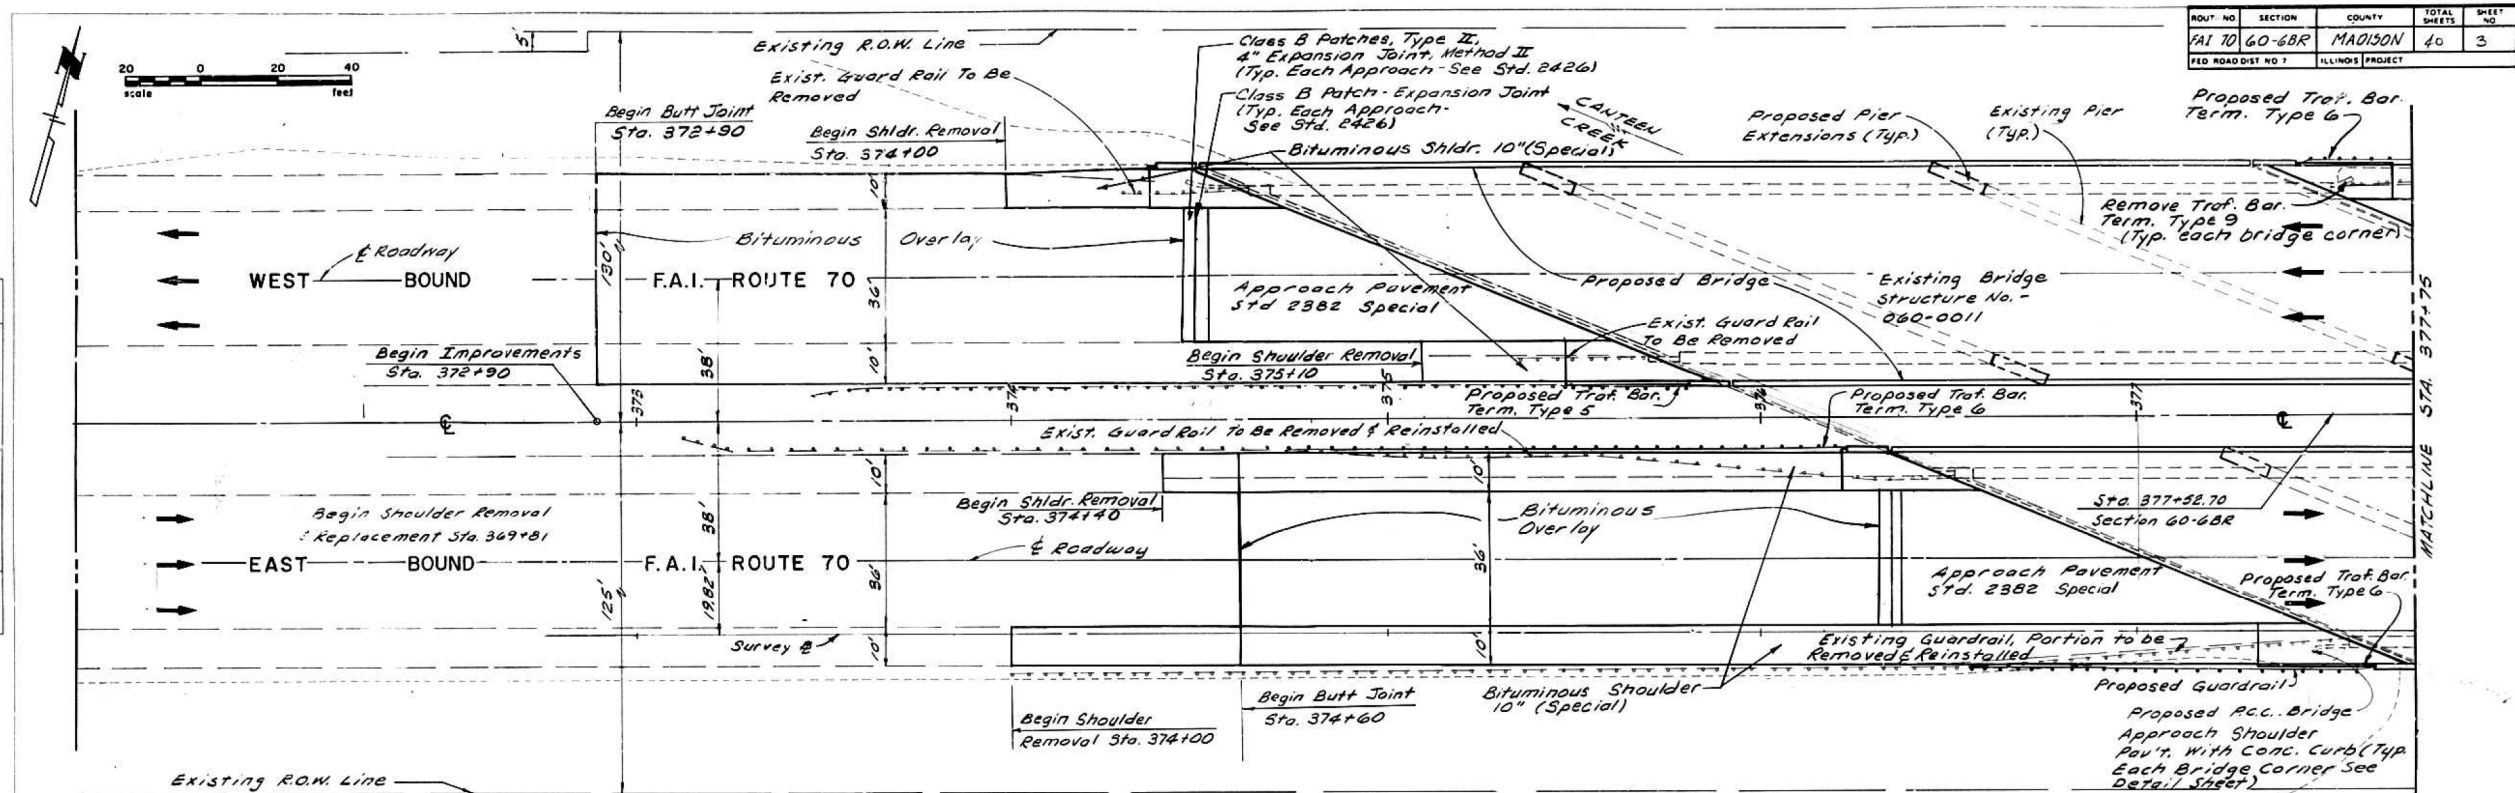 ROUT. NO. SECTION COUNTY TOTAL SHEETS SHEET NO
FAI 70 60-6BR MADISON 40 3
FED ROAD DIST NO 7 ILLINOIS PROJECT
N
20 0 20 40
scale feet
5'
Existing R.O.W. Line
Exist. Guard Rail To Be
Removed
Class B Patches, Type II,
4" Expansion Joint, Method II
(Typ. Each Approach - See Std. 2426)
Class B Patch - Expansion Joint
(Typ. Each Approach-
See Std. 2426)
CANTEEN
CREEK
Proposed Pier
Extensions (Typ.)
Existing Pier
(Typ.)
Proposed Traf. Bar.
Term. Type 6
Begin Butt Joint
Sta. 372+90
Begin Shldr. Removal
Sta. 374+00
Bituminous Shldr. 10" (Special)
Remove Traf. Bar.
Term. Type 9
(Typ. each bridge corner)
10'
130'
Bituminous Overlay
℄ Roadway
WEST BOUND F.A.I. ROUTE 70
36'
Approach Pavement
Std 2382 Special
Proposed Bridge
Existing Bridge
Structure No. -
060-0011
Exist. Guard Rail
To Be Removed
Begin Improvements
Sta. 372+90
38'
10'
Begin Shoulder Removal
Sta. 375+10
Proposed Traf. Bar.
Term. Type 5
Proposed Traf. Bar.
Term. Type 6
373
374
375
376
377
℄
℄
MATCHLINE STA. 377+75
Exist. Guard Rail To Be Removed & Reinstalled
10'
10'
Begin Shldr. Removal
Sta. 374+40
Sta. 377+52.70
Section 60-6BR
Begin Shoulder Removal
& Replacement Sta. 369+81
38'
Bituminous
Overlay
℄ Roadway
EAST BOUND F.A.I. ROUTE 70
36'
36'
125'
19.82'
Approach Pavement
Std. 2382 Special
Proposed Traf. Bar.
Term. Type 6
Survey ℄
10'
10'
Existing Guardrail, Portion to be
Removed & Reinstalled
Begin Shoulder
Removal Sta. 374+00
Begin Butt Joint
Sta. 374+60
Bituminous Shoulder
10" (Special)
Proposed Guardrail
Proposed P.C.C. Bridge
Approach Shoulder
Pav't. With Conc. Curb (Typ.
Each Bridge Corner See
Detail Sheet)
Existing R.O.W. Line